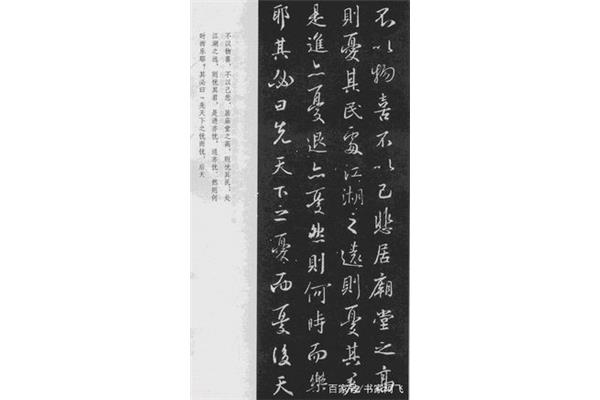 不以物喜不以己悲居廟堂之高
則憂其民處江湖之遠則憂其君
是進亦憂退亦憂然則何時而樂
耶其必曰先天下之憂而憂後天
不以物喜，不以己悲。居庙堂之高，则忧其民；处
江湖之远，则忧其君。是进亦忧，退亦忧。然则何
时而乐耶？其必曰“先天下之忧而忧，后天
百家号/书家